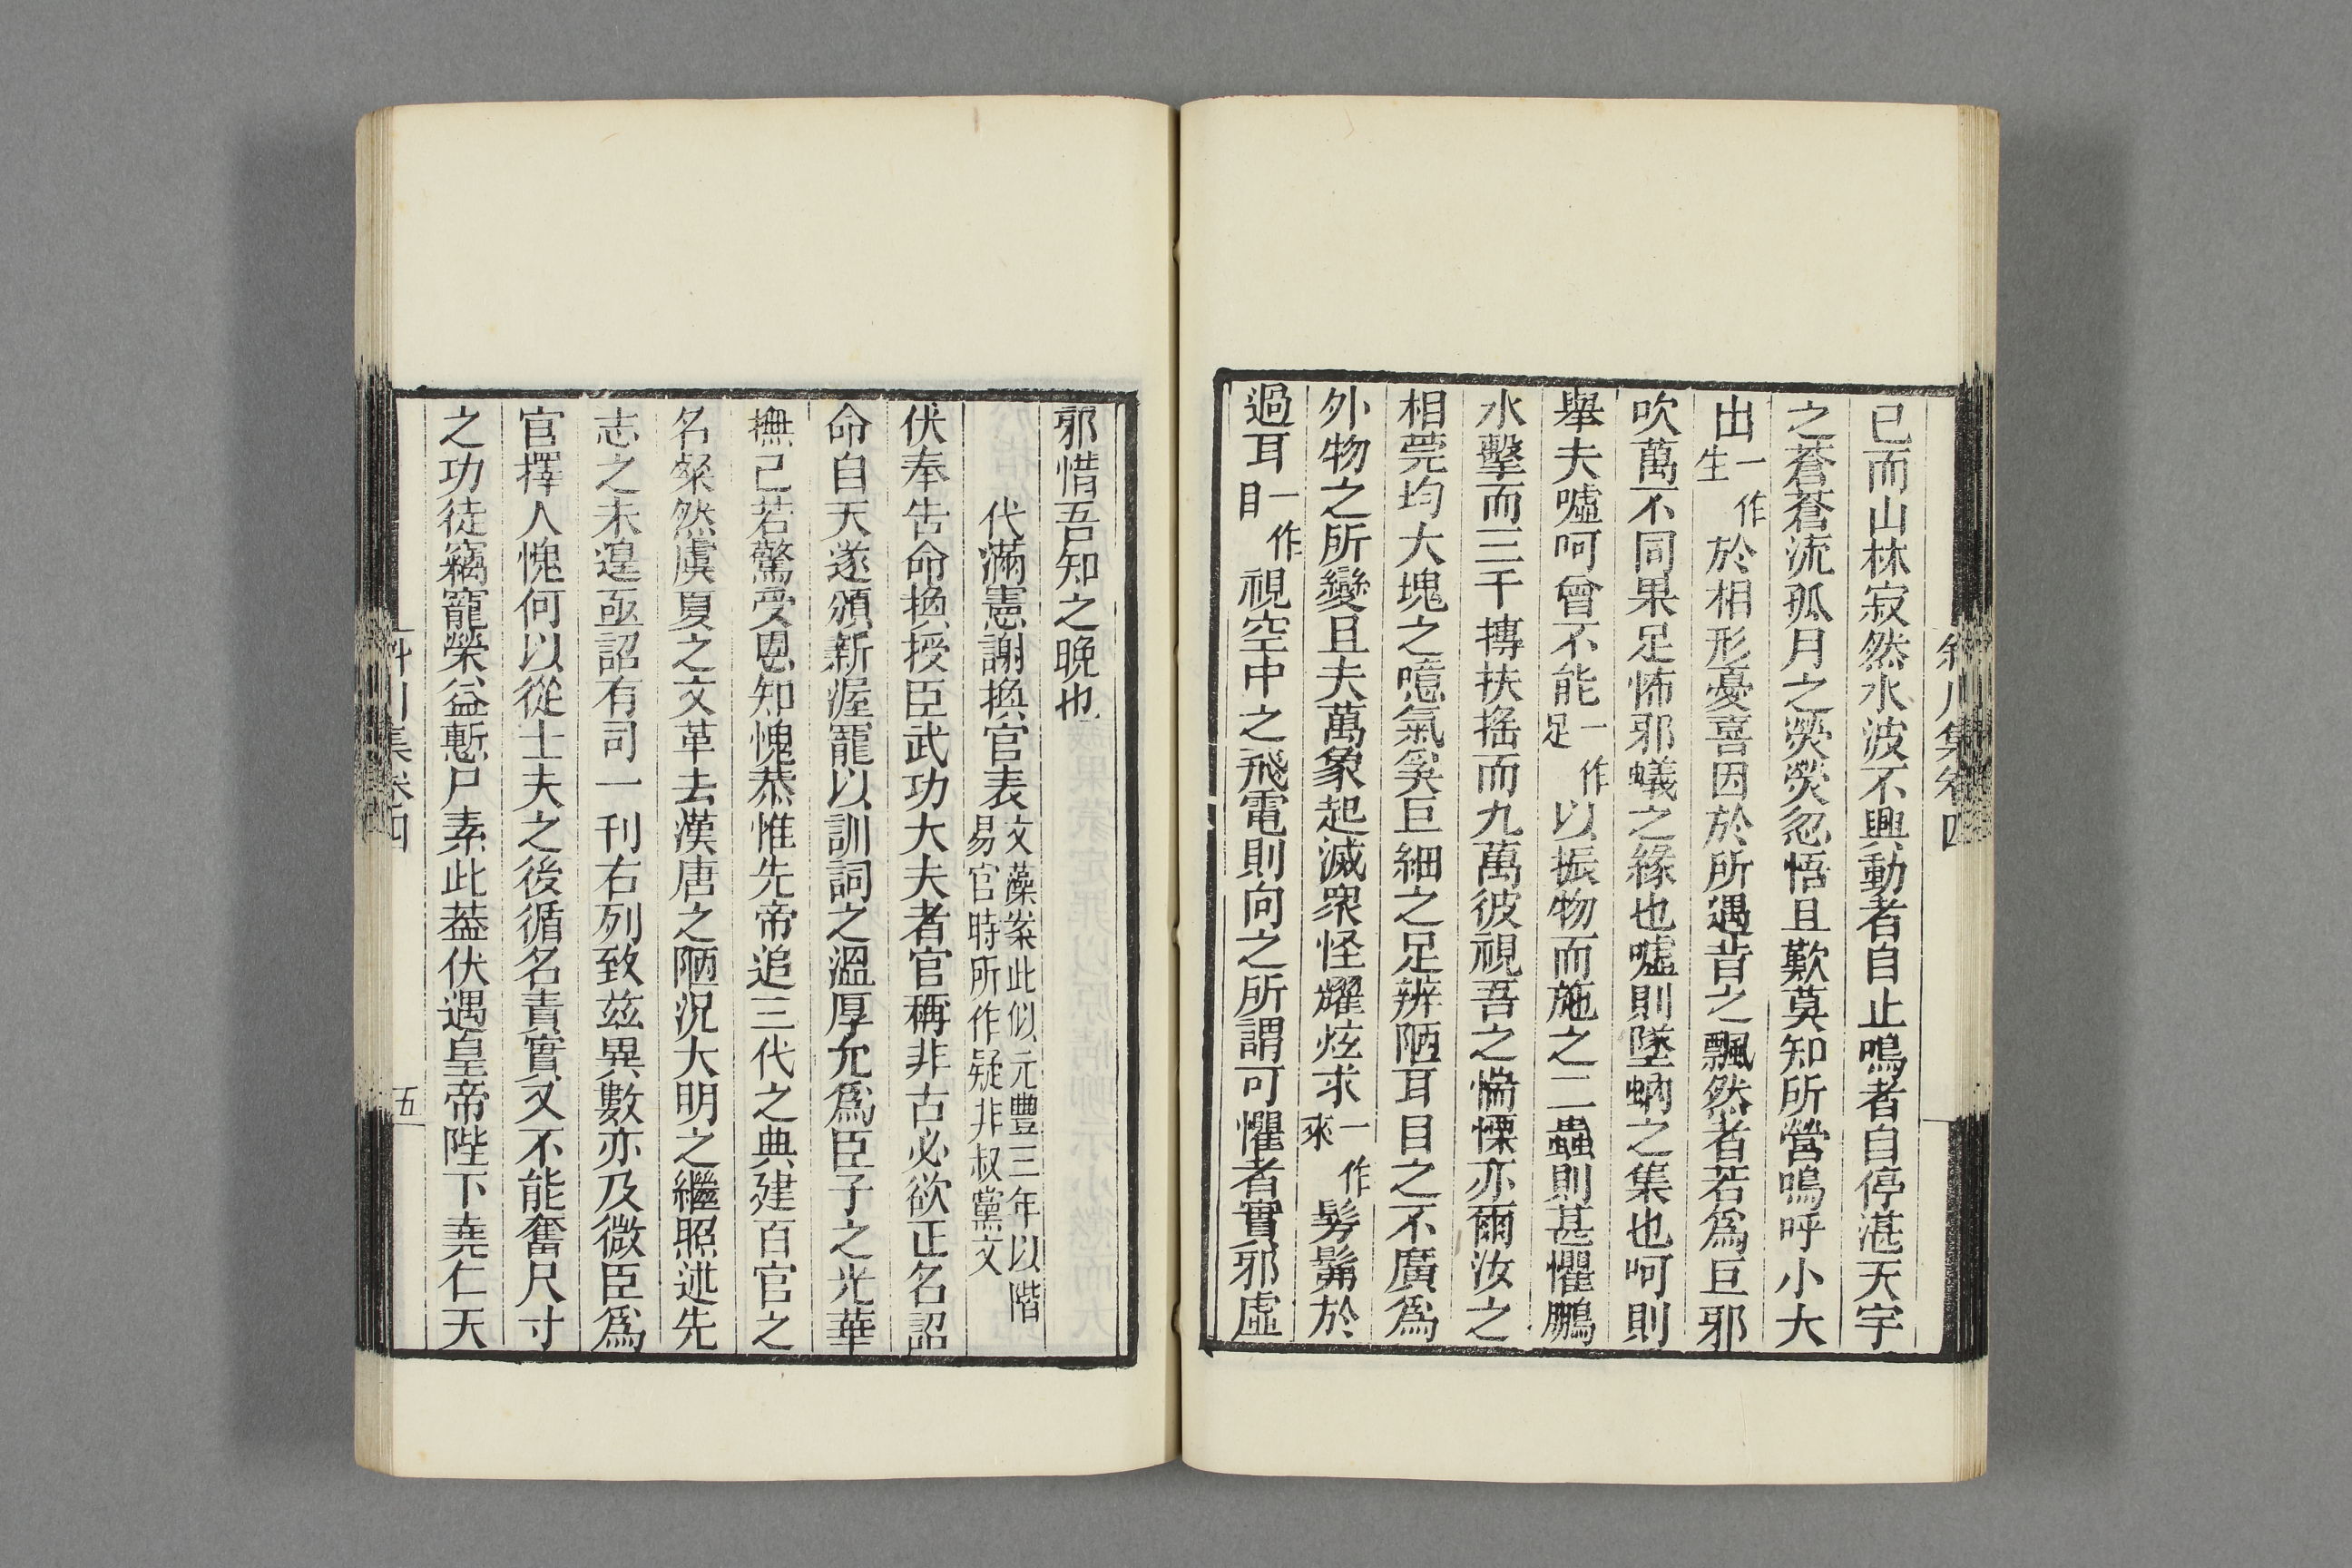 已而山林寂然水波不興動者自止鳴者自停湛天宇
之蒼蒼流孤月之熒熒忽悟且歎莫知所營嗚呼小大
出一作生於相形憂喜因於所遇昔之飄然者若爲巨邪
吹萬不同果足怖邪蟻之緣也噓則墜蚋之集也呵則
舉夫噓呵曾不能一作足以振物而施之二蟲則甚懼鵬
水擊而三千摶扶搖而九萬彼視吾之惴慄亦爾汝之
相莞均大塊之噫氣奚巨細之足辨陋耳目之不廣爲
外物之所變且夫萬象起滅衆怪燿炫求一作來髣髴於
過耳一作目視空中之飛電則向之所謂可懼者實邪虛
邪惜吾知之晚也
代滿憲謝換官表文藻案此似元豐三年以階易官時所作疑非叔黨文
伏奉告命換授臣武功大夫者官稱非古必欲正名詔
命自天遂頒新渥寵以訓詞之溫厚允爲臣子之光華
撫己若驚受恩知愧恭惟先帝追三代之典建百官之
名粲然虞夏之文革去漢唐之陋況大明之繼照述先
志之未遑亟詔有司一刊右列致茲異數亦及微臣爲
官擇人愧何以從士夫之後循名責實又不能奮尺寸
之功徒竊寵榮益慙尸素此葢伏遇皇帝陛下堯仁天
川集卷四
五